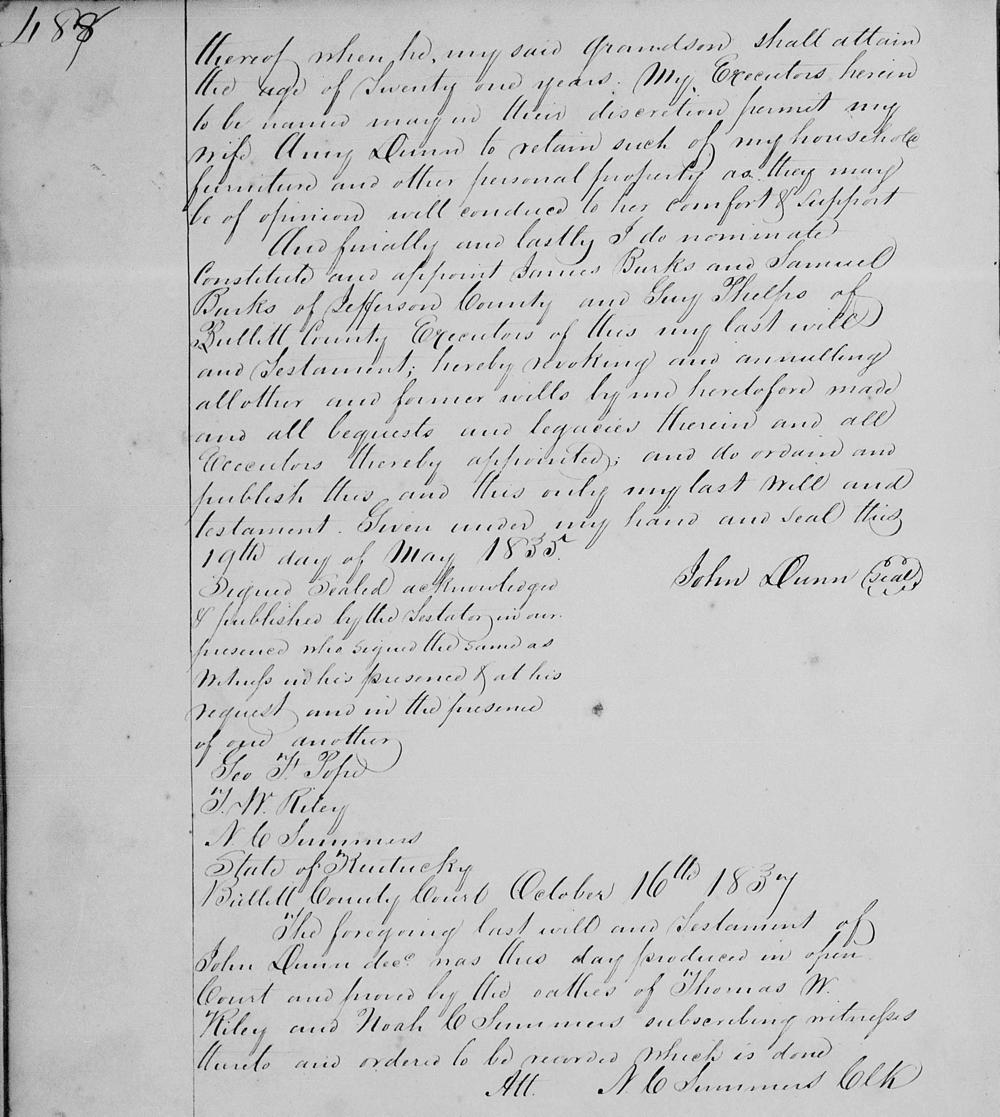 488
thereof when he, my said grandson shall attain
the age of Twenty one years. My Executors herein
to be named may in their discretion permit my
wife Amy Dunn to retain such of my household
furniture and other personal property as they may
be of opinion will conduce to her comfort & support
And finially and lastly I do nominate
Constitute and appoint James Burks and Samuel
Burks of Jefferson County and Guy Phelps of
Bullitt County Executors of this my last will
and Testament; hereby revoking and annulling
all other and former wills by me heretofore made
and all bequests and legacies therein and all
Executors thereby appointed; and do ordain and
publish this and this only my last will and
testament. Given under my hand and seal this
19th day of May 1835.
John Dunn (Seal)
Signed Sealed acknowledged
& published by the Testator in our
presence who signed the same as
Witness in his presence & at his
request and in the presence
of one another
Geo F. Pope
T. W. Riley
N C Summers
State of Kentucky
Bullitt County Court October 16th 1837
The foregoing last will and Testament of
John Dunn decd. was this day produced in open
Court and proved by the oathes of Thomas W.
Riley and Noah C Summers subscribing witnesses
thereto and ordered to be recorded which is done
Att. N C Summers Clk